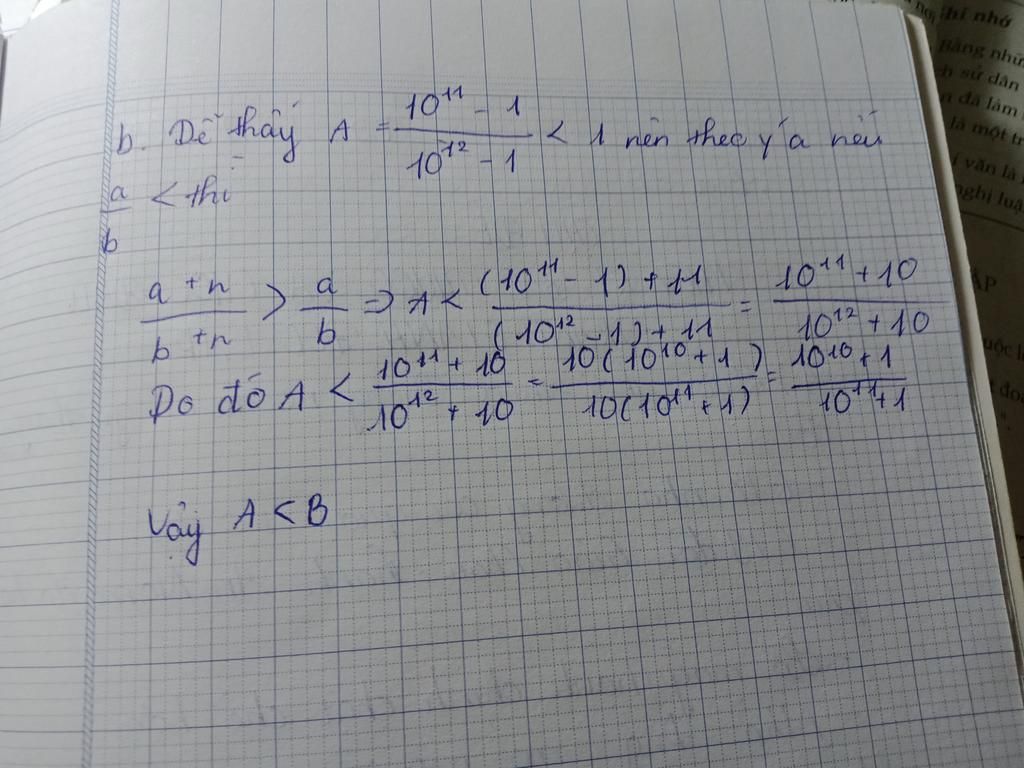 b. Dễ thấy A = \frac{10^{11} - 1}{10^{12} - 1} < 1 nên theo ý a nếu
\frac{a}{b} < thì
\frac{a + n}{b + n} > \frac{a}{b} => A < \frac{(10^{11} - 1) + 11}{(10^{12} - 1) + 11} = \frac{10^{11} + 10}{10^{12} + 10}
Do đó A < \frac{10^{11} + 10}{10^{12} + 10} = \frac{10(10^{10} + 1)}{10(10^{11} + 1)} = \frac{10^{10} + 1}{10^{11} + 1}
Vậy A < B
hỉ nhớ
Bằng nhữ
h sứ dân
n đã làm
là một tr
í văn là
nghị luậ
ẬP
uộc l
t đoạ